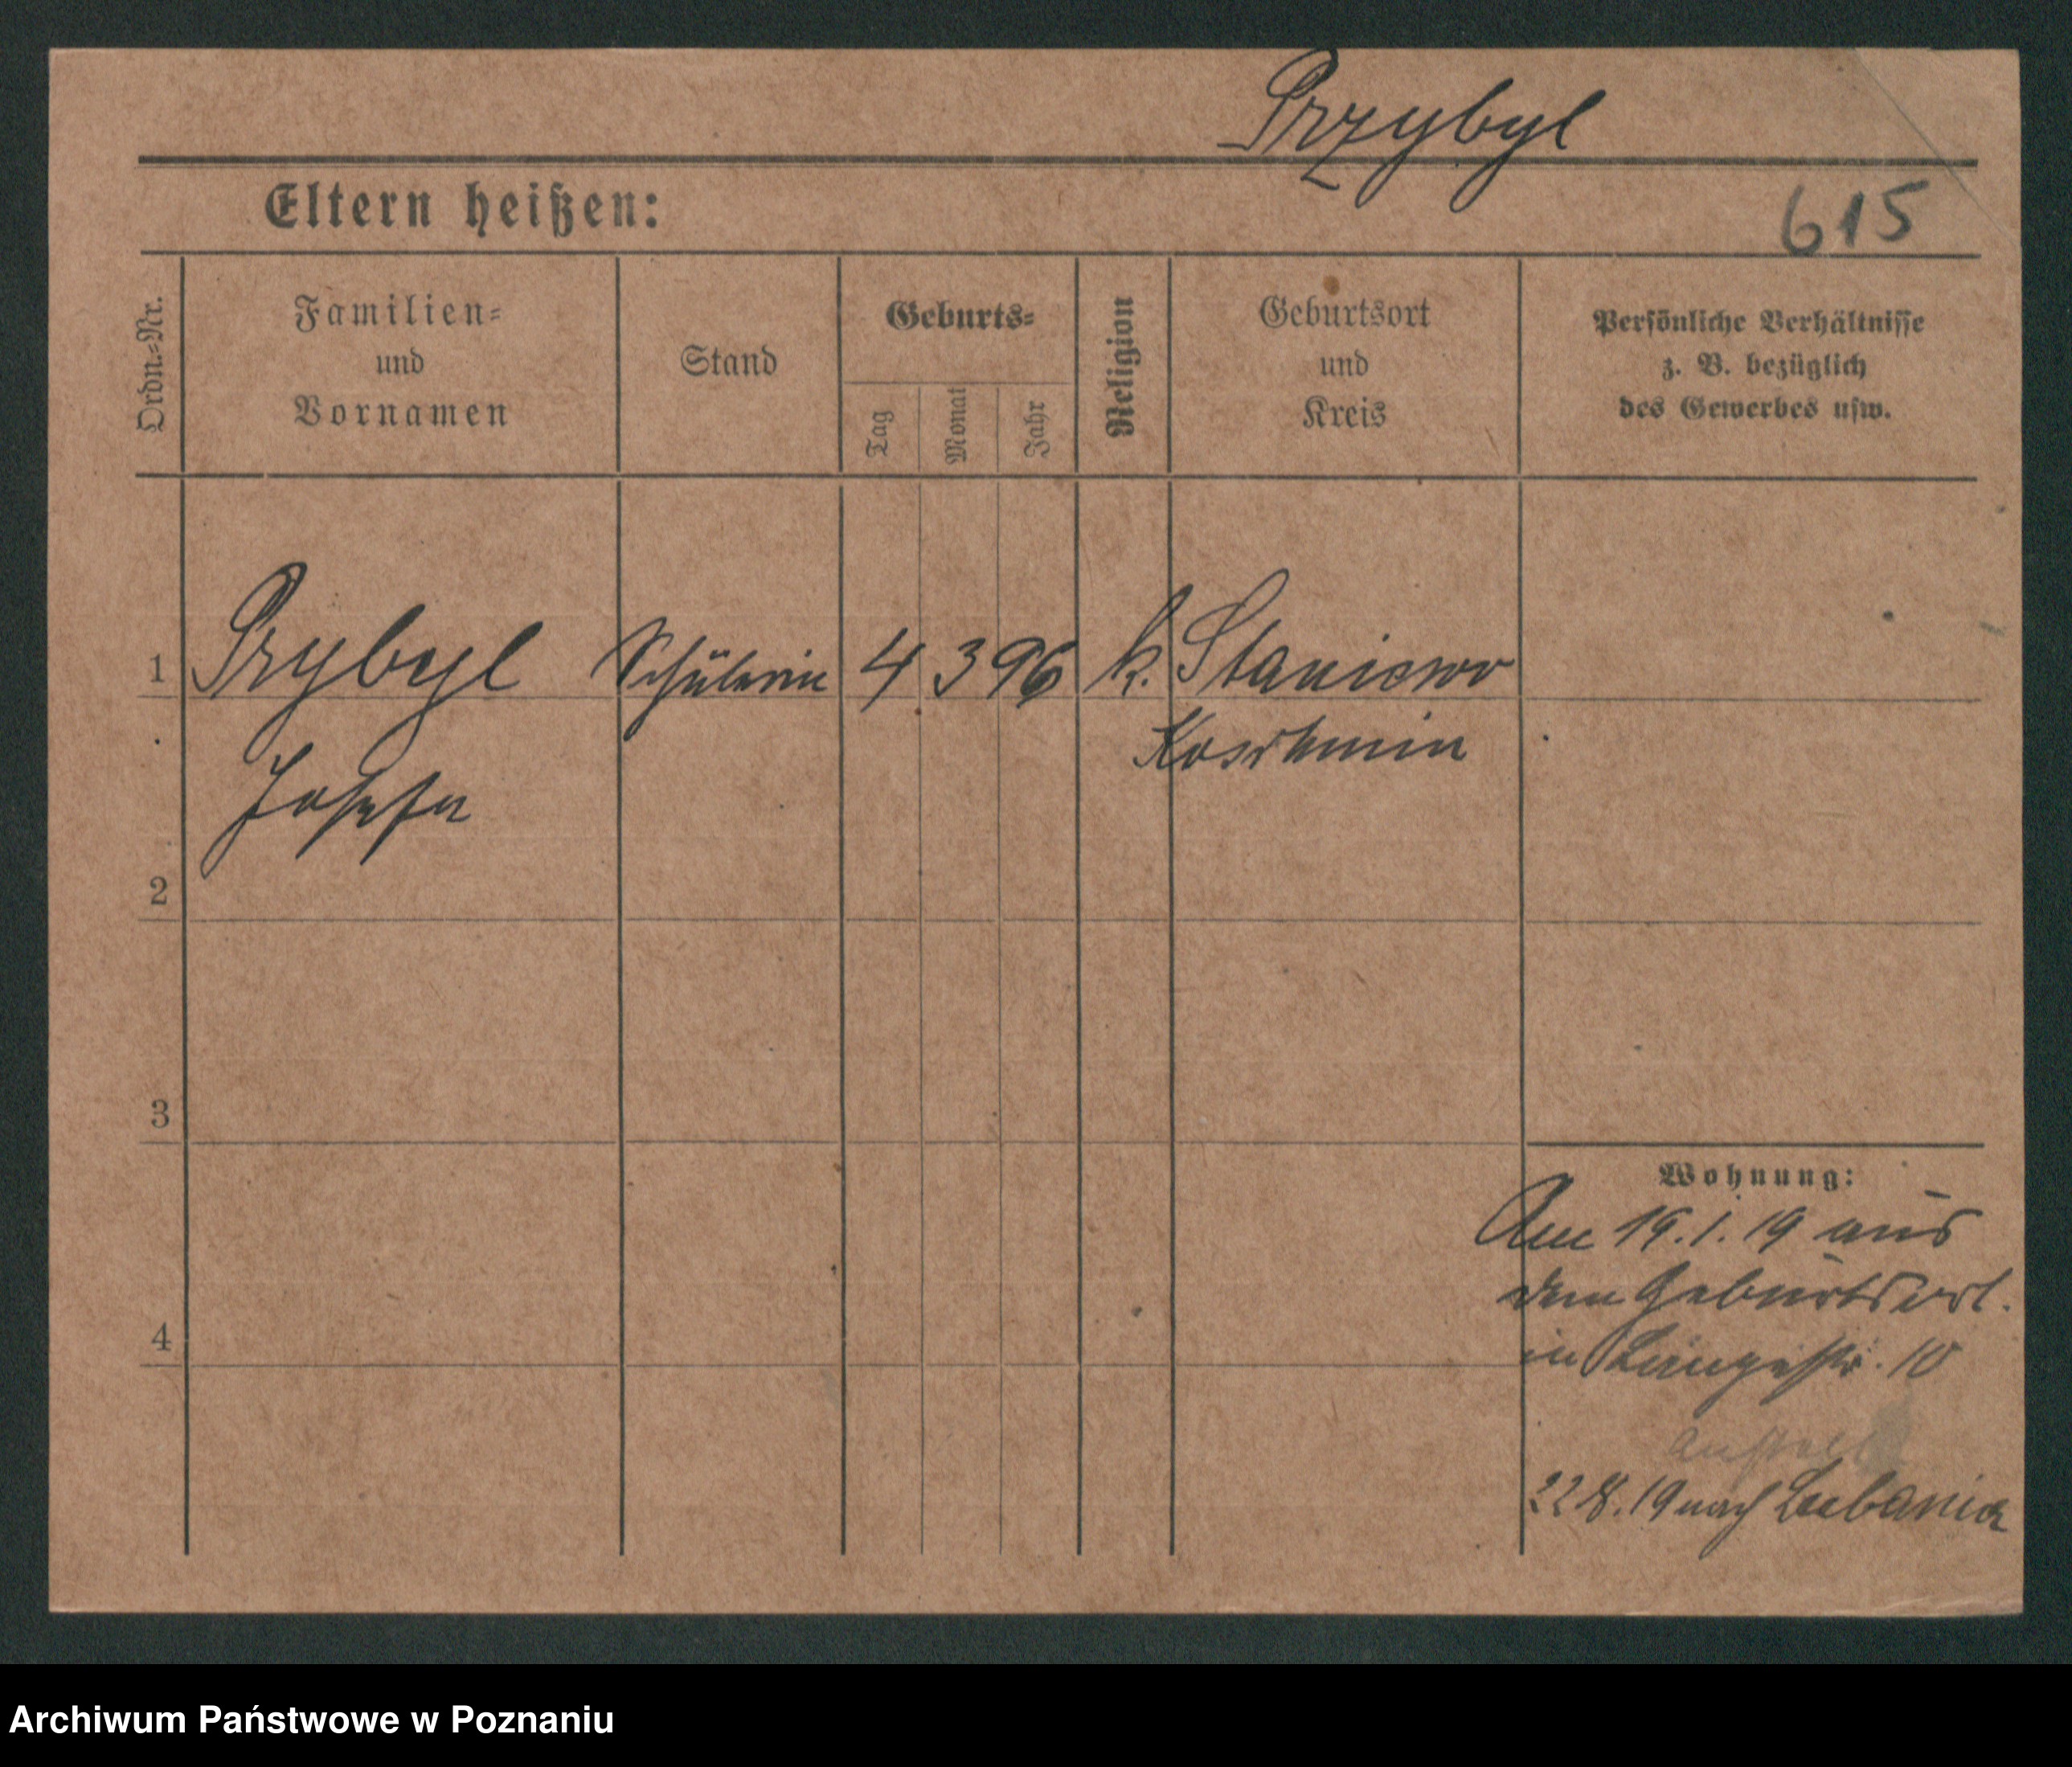 Przybyl
Eltern heißen:
615
Ordn.-Nr.
Familien-
und
Vornamen
Stand
Geburts-
Tag
Monat
Jahr
Religion
Geburtsort
und
Kreis
Persönliche Verhältnisse
z. B. bezüglich
des Gewerbes usw.
1 Przybyl Schülerin 4 3 96 k. Staniewo
Koschmin
Josefa
2
3
4
Wohnung:
Am 19.1.19 aus
dem Geburtsort.
in Langestr. 10
22 8. 19 nach
Archiwum Państwowe w Poznaniu